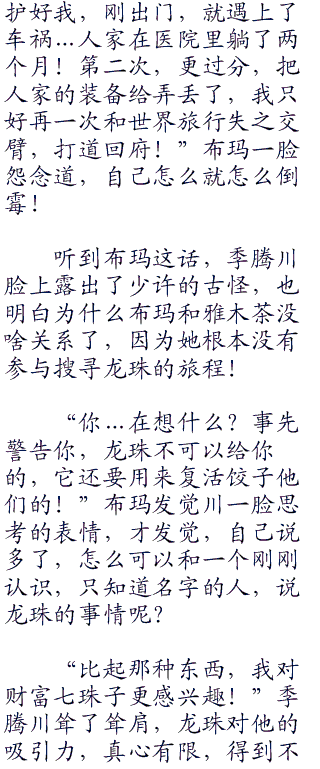 护好我，刚出门，就遇上了
车祸…人家在医院里躺了两
个月！第二次，更过分，把
人家的装备给弄丢了，我只
好再一次和世界旅行失之交
臂，打道回府！”布玛一脸
怨念道，自己怎么就怎么倒
霉！
听到布玛这话，季腾川
脸上露出了少许的古怪，也
明白为什么布玛和雅木茶没
啥关系了，因为她根本没有
参与搜寻龙珠的旅程！
“你…在想什么？事先
警告你，龙珠不可以给你
的，它还要用来复活饺子他
们的！”布玛发觉川一脸思
考的表情，才发觉，自己说
多了，怎么可以和一个刚刚
认识，只知道名字的人，说
龙珠的事情呢？
“比起那种东西，我对
财富七珠子更感兴趣！”季
腾川耸了耸肩，龙珠对他的
吸引力，真心有限，得到不